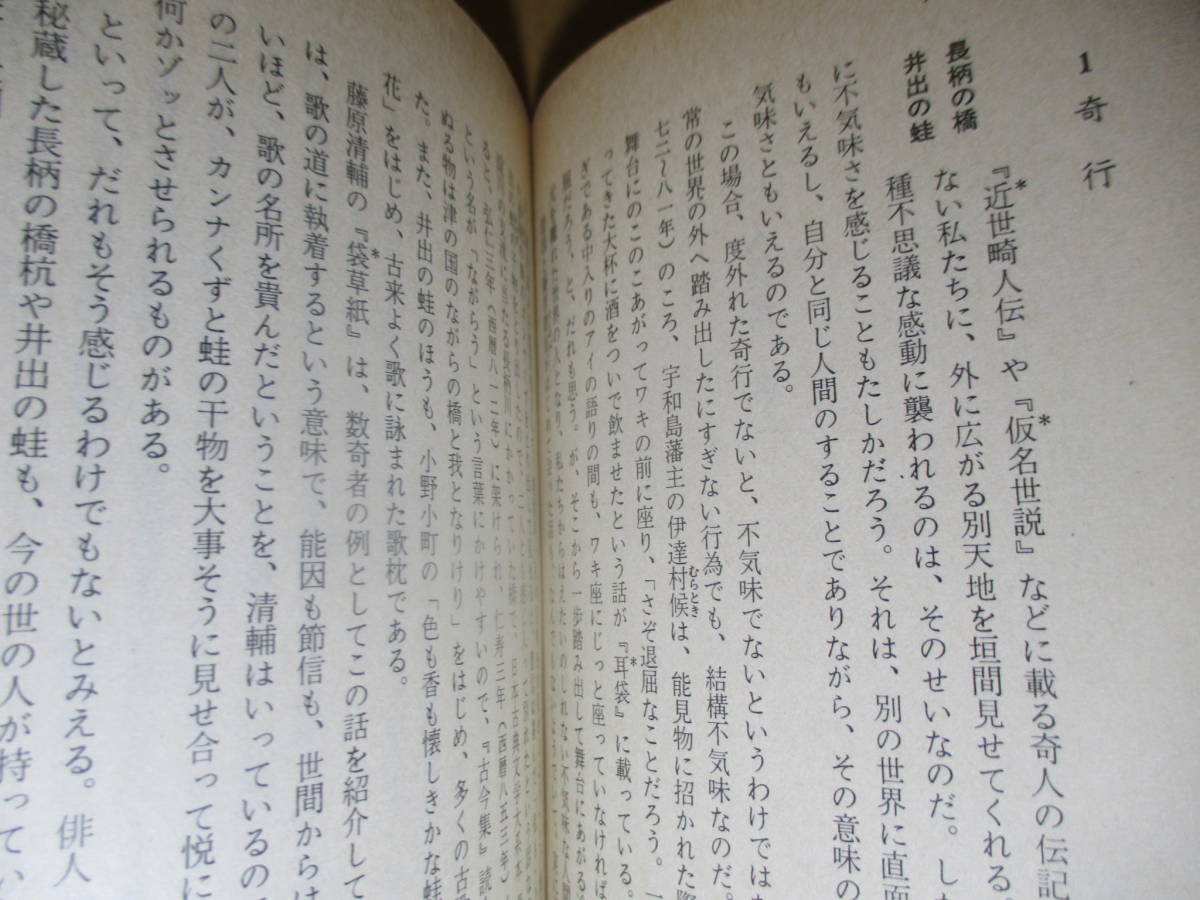 1 奇行
長柄の橋
井出の蛙
『近世畸人伝』や『仮名世説』などに載る奇人の伝記
ない私たちに、外に広がる別天地を垣間見せてくれる。
種不思議な感動に襲われるのは、そのせいなのだ。し
に不気味さを感じることもたしかだろう。それは、別の世界に直面
もいえるし、自分と同じ人間のすることでありながら、その意味の
気味さともいえるのである。
この場合、度外れた奇行でないと、不気味でないというわけでは
常の世界の外へ踏み出したにすぎない行為でも、結構不気味なのだ。
七二〜八一年)のころ、宇和島藩主の伊達村候は、能見物に招かれた際
むらとき
舞台にのこのこあがってワキの前に座り、「さぞ退屈なことだろう。一
ってきた大杯に酒をついで飲ませたという話が『耳袋』に載っている。
ぎである中入りのアイの語りの間も、ワキ座にじっと座っていなければ
屈だろう、と、だれも思う。が、そこから一歩踏み出して舞台にあがる
ると、弘仁三年(西暦八一二年)に架けられ、仁寿三年(西暦八五三年)
という名が、「ながらう」という言葉にかけやすいので、『古今集』読
ぬる物は津の国のながらの橋と我となりけり」をはじめ、多くの古
た。また、井出の蛙のほうも、小野小町の「色も香も懐しきかな蛙
花」をはじめ、古来よく歌に詠まれた歌枕である。
藤原清輔の『袋草紙』は、数奇者の例としてこの話を紹介して
は、歌の道に執着するという意味で、能因も節信も、世間からは
いほど、歌の名所を貴んだということを、清輔はいっているの
の二人が、カンナくずと蛙の干物を大事そうに見せ合って悦に
何かゾッとさせられるものがある。
といって、だれもそう感じるわけでもないとみえる。俳人
秘蔵した長柄の橋杭や井出の蛙も、今の世の人が持ってい